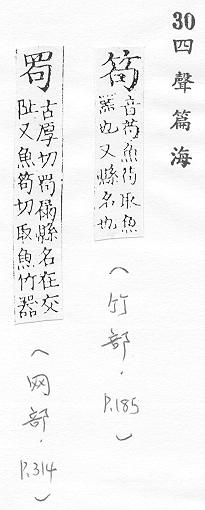 30四聲篇海
笱
音苟魚笱取魚
器也又縣名也
(竹部, P.185)
罟
古厚切罟𦋅縣名在交
趾又魚笱切取魚竹器
(网部, P.314)